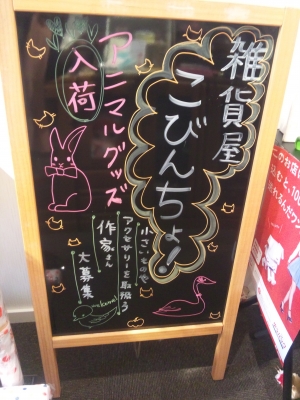 雑貨屋
こびんちょ！
アニマルグッズ
入荷
小さいものや
アクセサリーを取扱う
作家さん
大募集